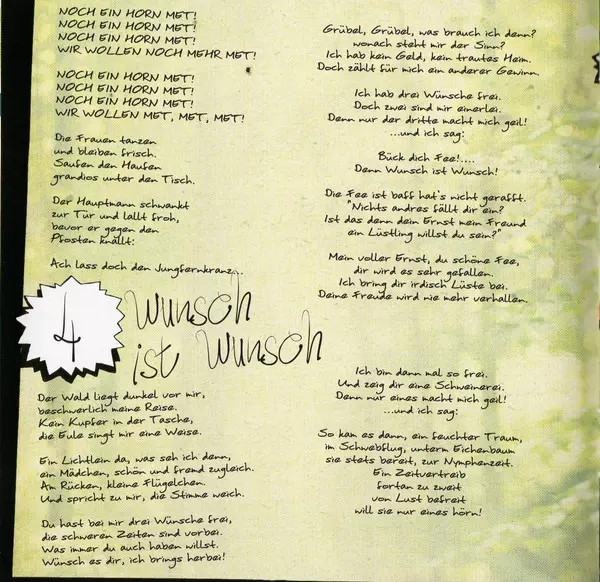 NOCH EIN HORN MET!
NOCH EIN HORN MET!
NOCH EIN HORN MET!
WIR WOLLEN NOCH MEHR MET!
NOCH EIN HORN MET!
NOCH EIN HORN MET!
NOCH EIN HORN MET!
WIR WOLLEN MET, MET, MET!
Die Frauen tanzen
und bleiben frisch.
Saufen den Haufen
grandios unter den Tisch.
Der Hauptmann schwankt
zur Tür und lallt froh,
bevor er gegen den
Pfosten knallt:
Ach lass doch den Jungfernkranz...
4
Wunsch
ist Wunsch
Der Wald liegt dunkel vor mir,
beschwerlich meine Reise.
Kein Kupfer in der Tasche,
die Eule singt mir eine Weise.
Ein Lichtlein da, was seh ich denn,
ein Mädchen, schön und fremd zugleich.
Am Rücken, kleine Flügelchen.
Und spricht zu mir, die Stimme weich.
Du hast bei mir drei Wünsche frei,
die schweren Zeiten sind vorbei.
Was immer du auch haben willst.
Wünsch es dir, ich brings herbei!
Grübel, Grübel, was brauch ich denn?
wonach steht mir der Sinn?
Ich hab kein Geld, kein trautes Heim.
Doch zählt für mich ein anderer Gewinn.
Ich hab drei Wünsche frei.
Doch zwei sind mir einerlei.
Denn nur der dritte macht mich geil!
...und ich sag:
Bück dich Fee!....
Denn Wunsch ist Wunsch!
Die Fee ist baff hat's nicht gerafft.
"Nichts andres fällt dir ein?
Ist das denn dein Ernst mein Freund
ein Lüstling willst du sein?"
Mein voller Ernst, du schöne Fee,
dir wird es sehr gefallen.
Ich bring dir irdisch Lüste bei.
Deine Freude wird nie mehr verhallen.
Ich bin dann mal so frei.
Und zeig dir eine Schweinerei.
Denn nur eines macht mich geil!
...und ich sag:
So kam es dann, ein feuchter Traum,
im Schwebflug, unterm Eichenbaum
sie stets bereit, zur Nymphenzeit.
Ein Zeitvertreib
fortan zu zweit
von Lust befreit
will sie nur eines hörn!